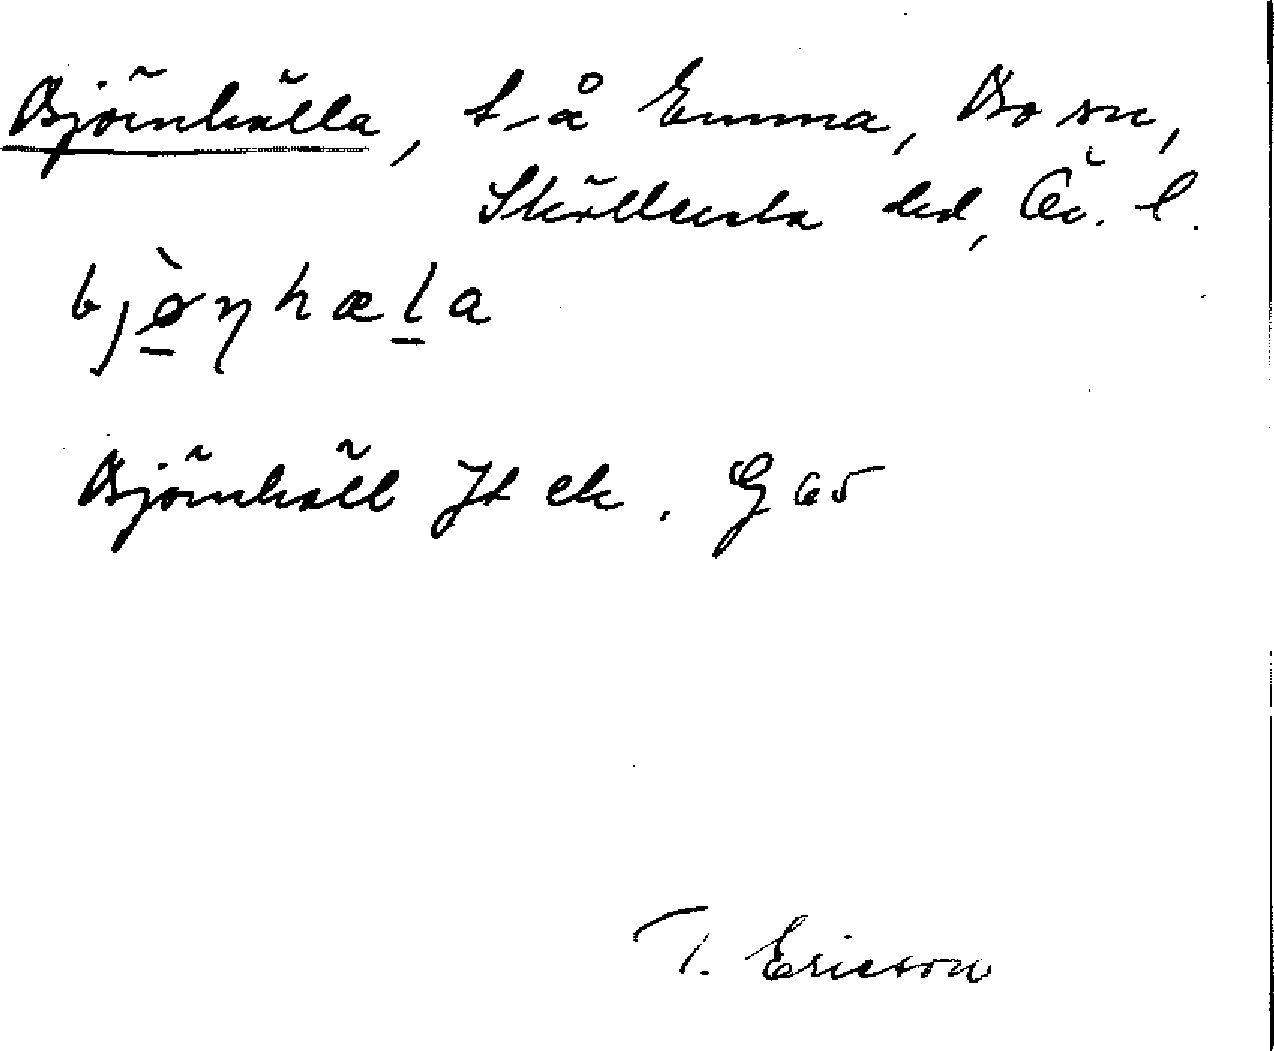 Björnhälla, t å Emma, Bo sn,
Sköllersta hd, Ör. l.
bjø̀ŋhæla
Björnhäll Jt ek. G 65
T. Ericson